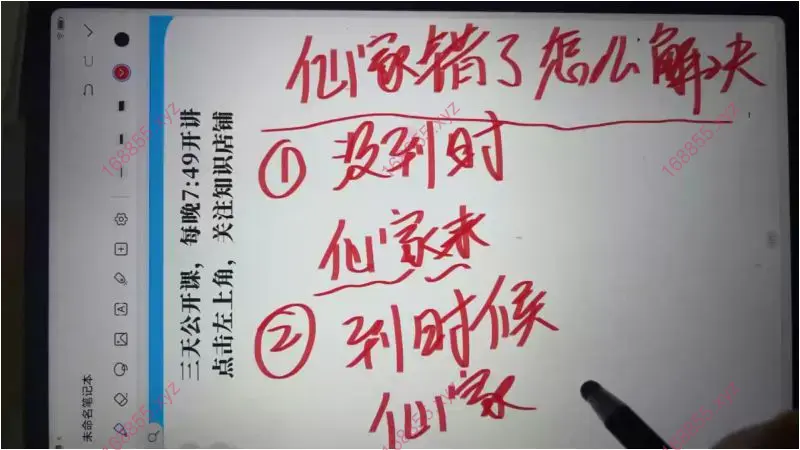 仙家错了怎么解决
① 没到时
仙家来
② 到时候
仙家
三天公开课，每晚7:49开讲
点击左上角，关注知识店铺
未命名笔记本
168855.xyz
168855.xyz
168855.xyz
168855.xyz
168855.xyz
168855.xyz